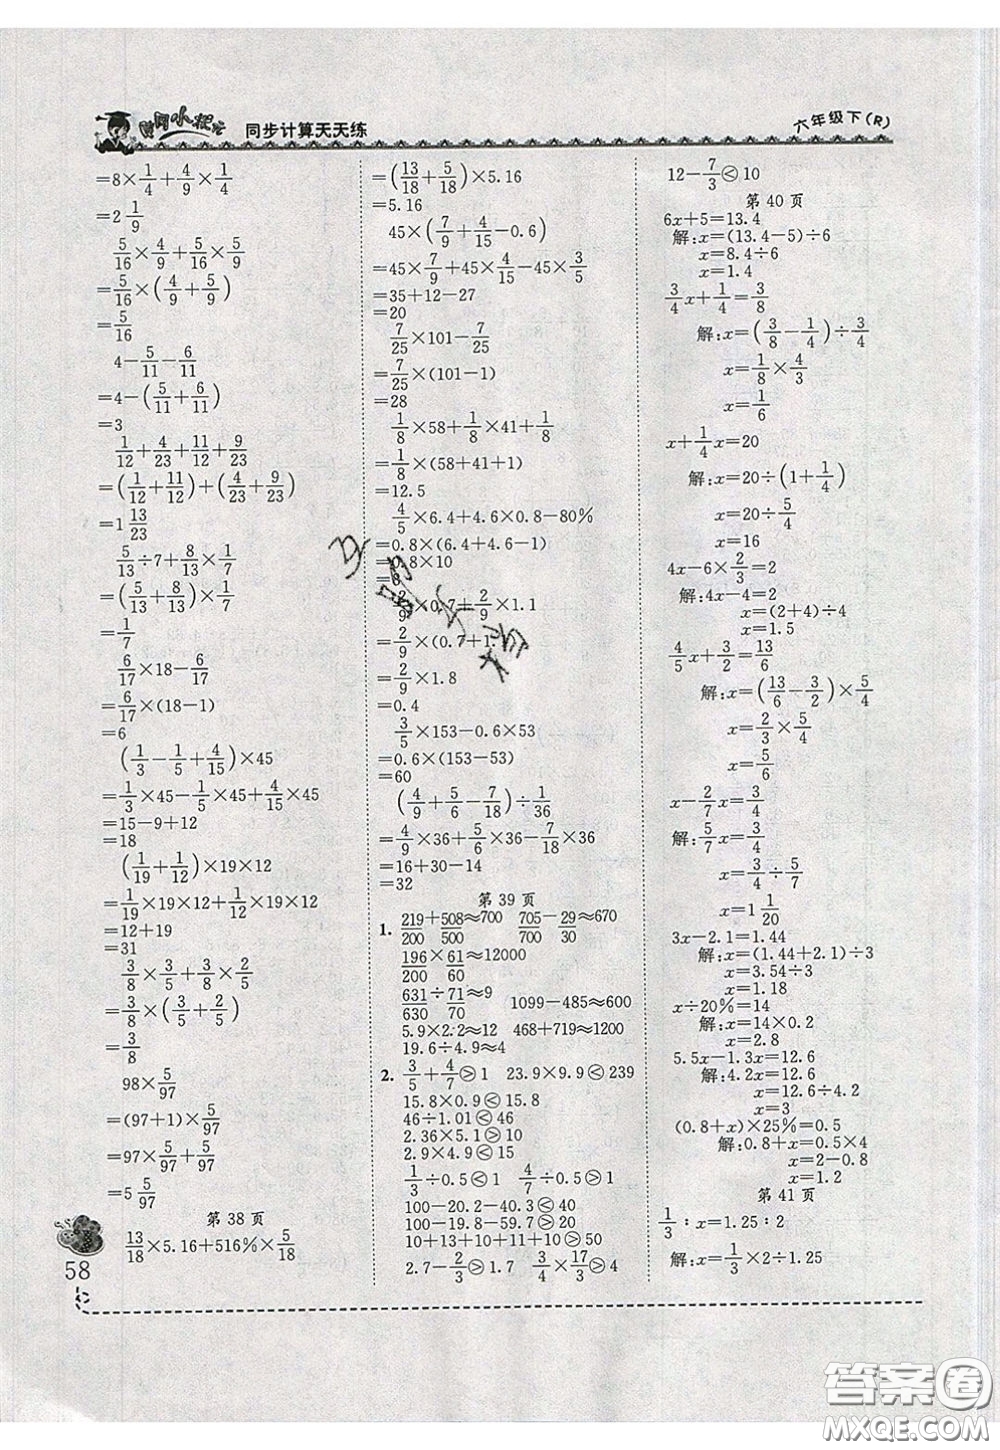 黄冈小状元 同步计算天天练 六年级下(R)
=8×1/4+4/9×1/4
=2 1/9
5/16×4/9+5/16×5/9
=5/16×(4/9+5/9)
=5/16
4-5/11-6/11
=4-(5/11+6/11)
=3
1/12+4/23+11/12+9/23
=(1/12+11/12)+(4/23+9/23)
=1 13/23
5/13÷7+8/13×1/7
=(5/13+8/13)×1/7
=1/7
6/17×18-6/17
=6/17×(18-1)
=6
(1/3-1/5+4/15)×45
=1/3×45-1/5×45+4/15×45
=15-9+12
=18
(1/19+1/12)×19×12
=1/19×19×12+1/12×19×12
=12+19
=31
3/8×3/5+3/8×2/5
=3/8×(3/5+2/5)
=3/8
98×5/97
=(97+1)×5/97
=97×5/97+5/97
=5 5/97
第38页
13/18×5.16+516%×5/18
58
=(13/18+5/18)×5.16
=5.16
45×(7/9+4/15-0.6)
=45×7/9+45×4/15-45×3/5
=35+12-27
=20
7/25×101-7/25
=7/25×(101-1)
=28
1/8×58+1/8×41+1/8
=1/8×(58+41+1)
=12.5
4/5×6.4+4.6×0.8-80%
=0.8×(6.4+4.6-1)
=0.8×10
=8
2/9×0.7+2/9×1.1
=2/9×(0.7+1
=2/9×1.8
=0.4
3/5×153-0.6×53
=0.6×(153-53)
=60
(4/9+5/6-7/18)÷1/36
=4/9×36+5/6×36-7/18×36
=16+30-14
=32
第39页
1. 219+508≈700 705-29≈670
200 500 700 30
196×61≈12000
200 60
631÷71≈9 1099-485≈600
630 70
5.9×2.2≈12 468+719≈1200
19.6÷4.9≈4
2. 3/5+4/7>1 23.9×9.9<239
15.8×0.9<15.8
46÷1.01<46
2.36×5.1>10
2.9×4.9<15
1/3÷0.5<1 4/7÷0.5>1
100-20.2-40.3<40
100-19.8-59.7>20
10+13+10+11+10>50
2.7-2/3>1.7 3/4×17/3>4
12-7/3<10
第40页
6x+5=13.4
解:x=(13.4-5)÷6
x=8.4÷6
x=1.4
3/4x+1/4=3/8
解:x=(3/8-1/4)÷3/4
x=1/8×4/3
x=1/6
x+1/4x=20
解:x=20÷(1+1/4)
x=20÷5/4
x=16
4x-6×2/3=2
解:4x-4=2
x=(2+4)÷4
x=1.5
4/5x+3/2=13/6
解:x=(13/6-3/2)×5/4
x=2/3×5/4
x=5/6
x-2/7x=3/4
解:5/7x=3/4
x=3/4÷5/7
x=1 1/20
3x-2.1=1.44
解:x=(1.44+2.1)÷3
x=3.54÷3
x=1.18
x÷20%=14
解:x=14×0.2
x=2.8
5.5x-1.3x=12.6
解:4.2x=12.6
x=12.6÷4.2
x=3
(0.8+x)×25%=0.5
解:0.8+x=0.5×4
x=2-0.8
x=1.2
第41页
1/3:x=1.25:2
解:x=1/3×2÷1.25
答案圈
MXQE.COM